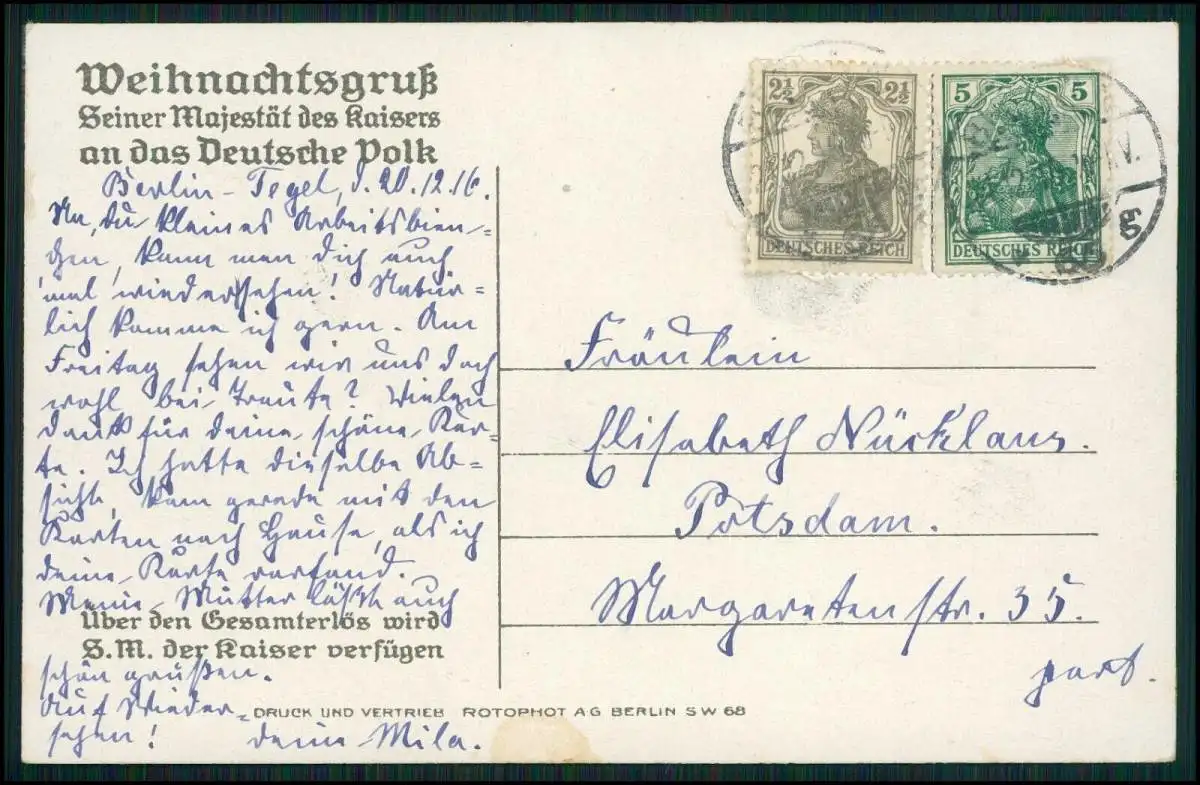 Weihnachtsgruß
Seiner Majestät des Kaisers
an das Deutsche Volk
Berlin-Tegel, d. 20.12.16.
Na, du kleines Arbeitsbien-
chen, kann man dich auch
'mal wiedersehen! Natür-
lich komme ich gern. Am
Freitag sehen wir uns doch
wohl bei Traute? Vielen
Dank für deine schöne Kar-
te. Ich hatte dieselbe Ab-
sicht, kam gerade mit den
Karten nach Hause, als ich
deine Karte vorfand.
Meine Mutter läßt auch
Über den Gesamterlös wird
S.M. der Kaiser verfügen
schön grüßen.
Auf Wieder-
sehen! deine Mila.
DRUCK UND VERTRIEB ROTOPHOT AG BERLIN SW 68
2½ 2½
DEUTSCHES REICH
5 5
DEUTSCHES REICH
g
Fräulein
Elisabeth Nücklaus.
Potsdam.
Margaretenstr. 35.
part.